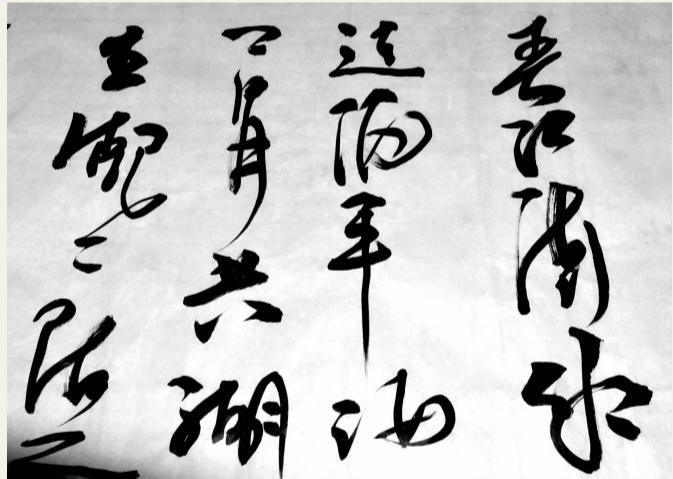 春江潮水
连海平海
上明月共潮
生滟々随